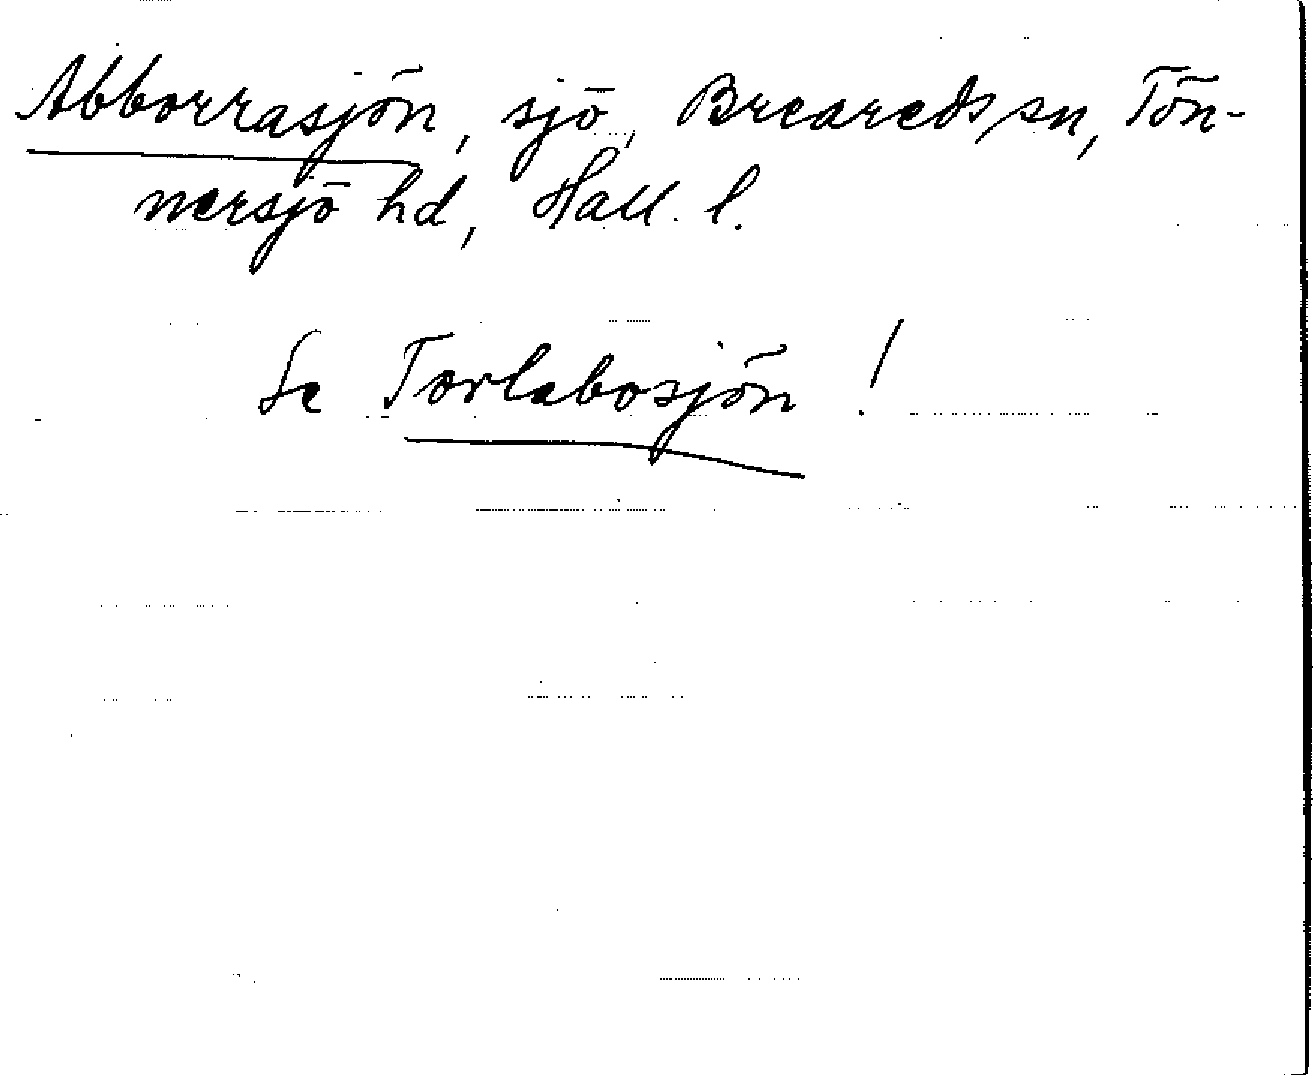 Abborrasjön, sjö, Breareds sn, Tön-
nersjö hd, Hall. l.
Se Torlabosjön!